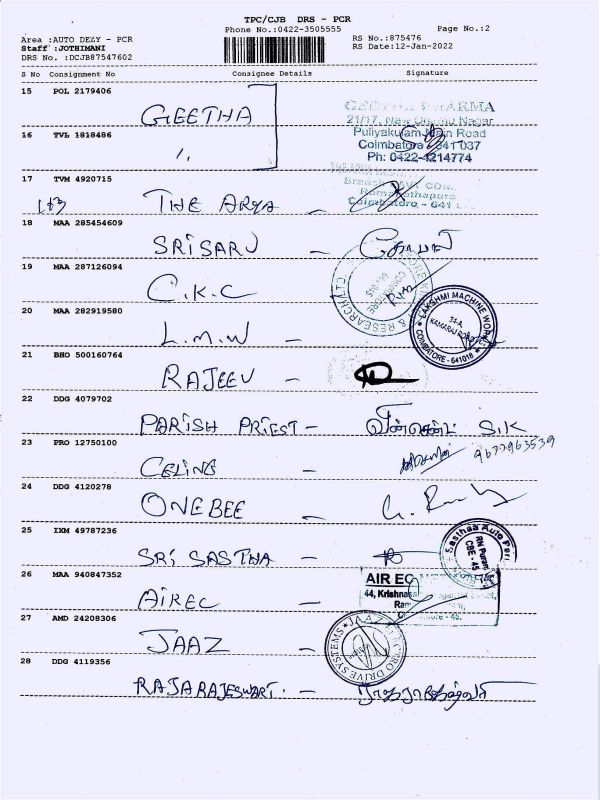 TPC/CJB DRS - PCR
Phone No.:0422-3505555
Page No.:2
Area :AUTO DEZY - PCR
RS No.:875476
Staff :JOTHIMANI
RS Date:12-Jan-2022
DRS No. :DCJB87547602
S No Consignment No Consignee Details Signature
15 POL 2179406
GEETHA
21/17, New
Puliyakulam Main Road
Coimbatore - 641 037
Ph: 0422-4214774
16 TVL 1818486
17 TVM 4920715
THE ARYA -
Coimbatore - 641
18 MAA 285454609
SRI SARU -
19 MAA 287126094
C.K.C
& RESEARCH
20 MAA 282919580
L.M.W -
LAKSHMI MACHINE WORKS
34-A,
KAMARAJ ROAD
COIMBATORE - 641018
21 BHO 500160764
RAJEEV -
22 DDG 4079702
PARISH PRIEST - S.K
23 PRO 12750100
CELINE - 9677963539
24 DDG 4120278
ONEBEE -
25 IXM 49787236
SRI SASTHA -
Sasthaa Auto
RN Puram
CBE - 45
26 MAA 940847352
AIREC -
AIR EC
44, Krishna
27 AMD 24208306
JAAZ -
DRIVE SYSTEMS
28 DDG 4119356
RAJARAJESWARI. -